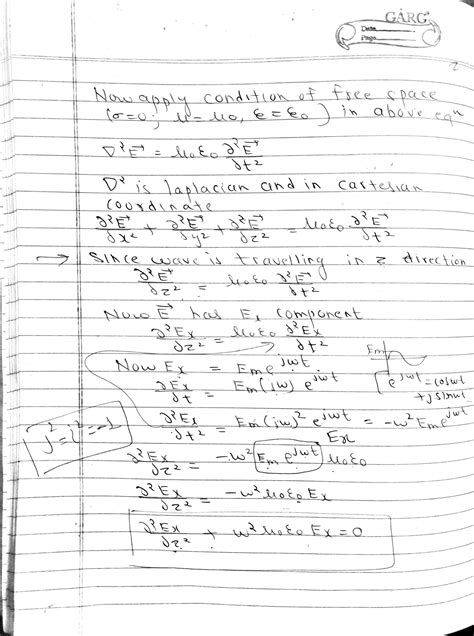 GARG
Date
Page
2
Now apply condition of free space
(σ=0; μ=μ0, ε=ε0) in above eqⁿ
∇²E⃗ = μ0ε0 ∂²E⃗/∂t²
∇² is laplacian and in cartesian
coordinate
∂²E⃗/∂x² + ∂²E⃗/∂y² + ∂²E⃗/∂z² = μ0ε0 ∂²E⃗/∂t²
→ Since wave is travelling in z direction
∂²E⃗/∂z² = μ0ε0 ∂²E⃗/∂t²
Now E⃗ has Ex component
∂²Ex/∂z² = μ0ε0 ∂²Ex/∂t²
Em
Now Ex = Em e^jωt
e^jωt = cosωt
+ j sinωt
∂Ex/∂t = Em(jω) e^jωt
∂²Ex/∂t² = Em(jω)² e^jωt = -ω² Em e^jωt
j²=i²=-1
Ex
∂²Ex/∂z² = -ω² Em e^jωt μ0ε0
∂²Ex/∂z² = -ω² μ0ε0 Ex
∂²Ex/∂z² + ω² μ0ε0 Ex = 0